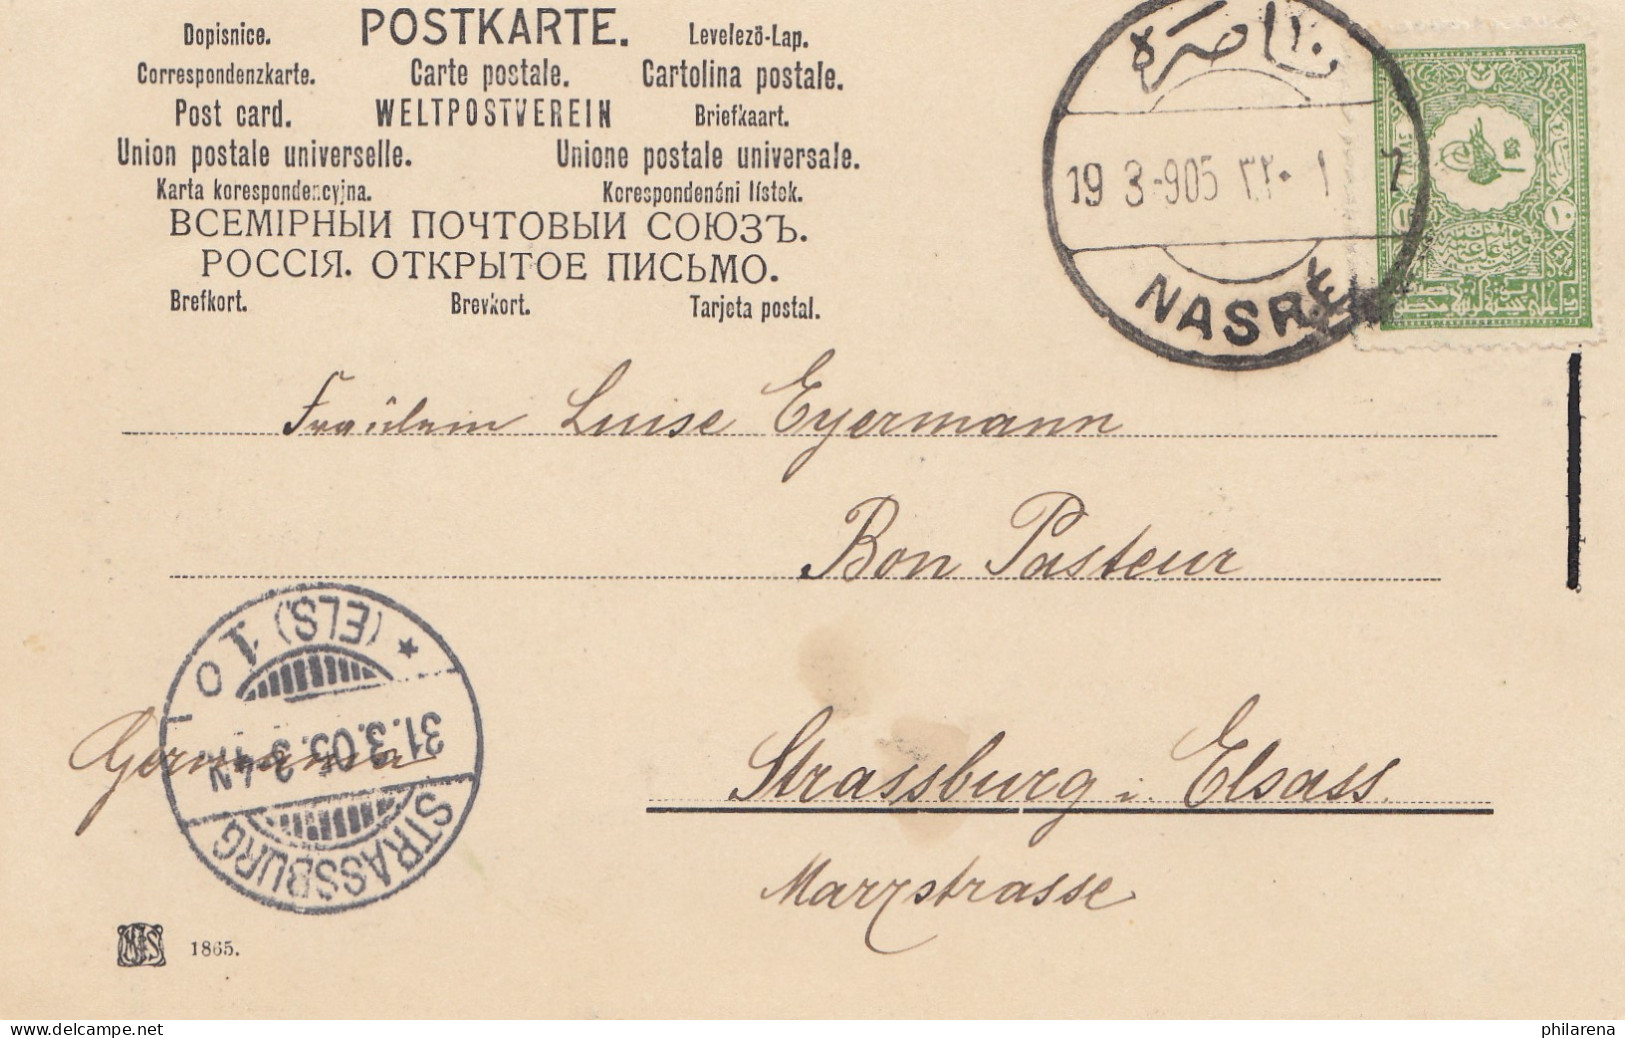 POSTKARTE.
Dopisnice. Levelező-Lap.
Correspondenzkarte. Carte postale. Cartolina postale.
Post card. WELTPOSTVEREIN Briefkaart.
Union postale universelle. Unione postale universale.
Karta korespondencyjna. Korespondenéni lístek.
ВСЕМІРНЫИ ПОЧТОВЫИ СОЮЗЪ.
РОССІЯ. ОТКРЫТОЕ ПИСЬМО.
Brefkort. Brevkort. Tarjeta postal.
ناصره
19 3-905
NASRÉ
١٠
Fräulein Luise Eyermann
Bon Pasteur
Strassburg i. Elsass.
Marzstrasse
Germania
STRASSBURG
31.3.05. 3-4N
* (ELS) 1 o
1865.
philarena.com